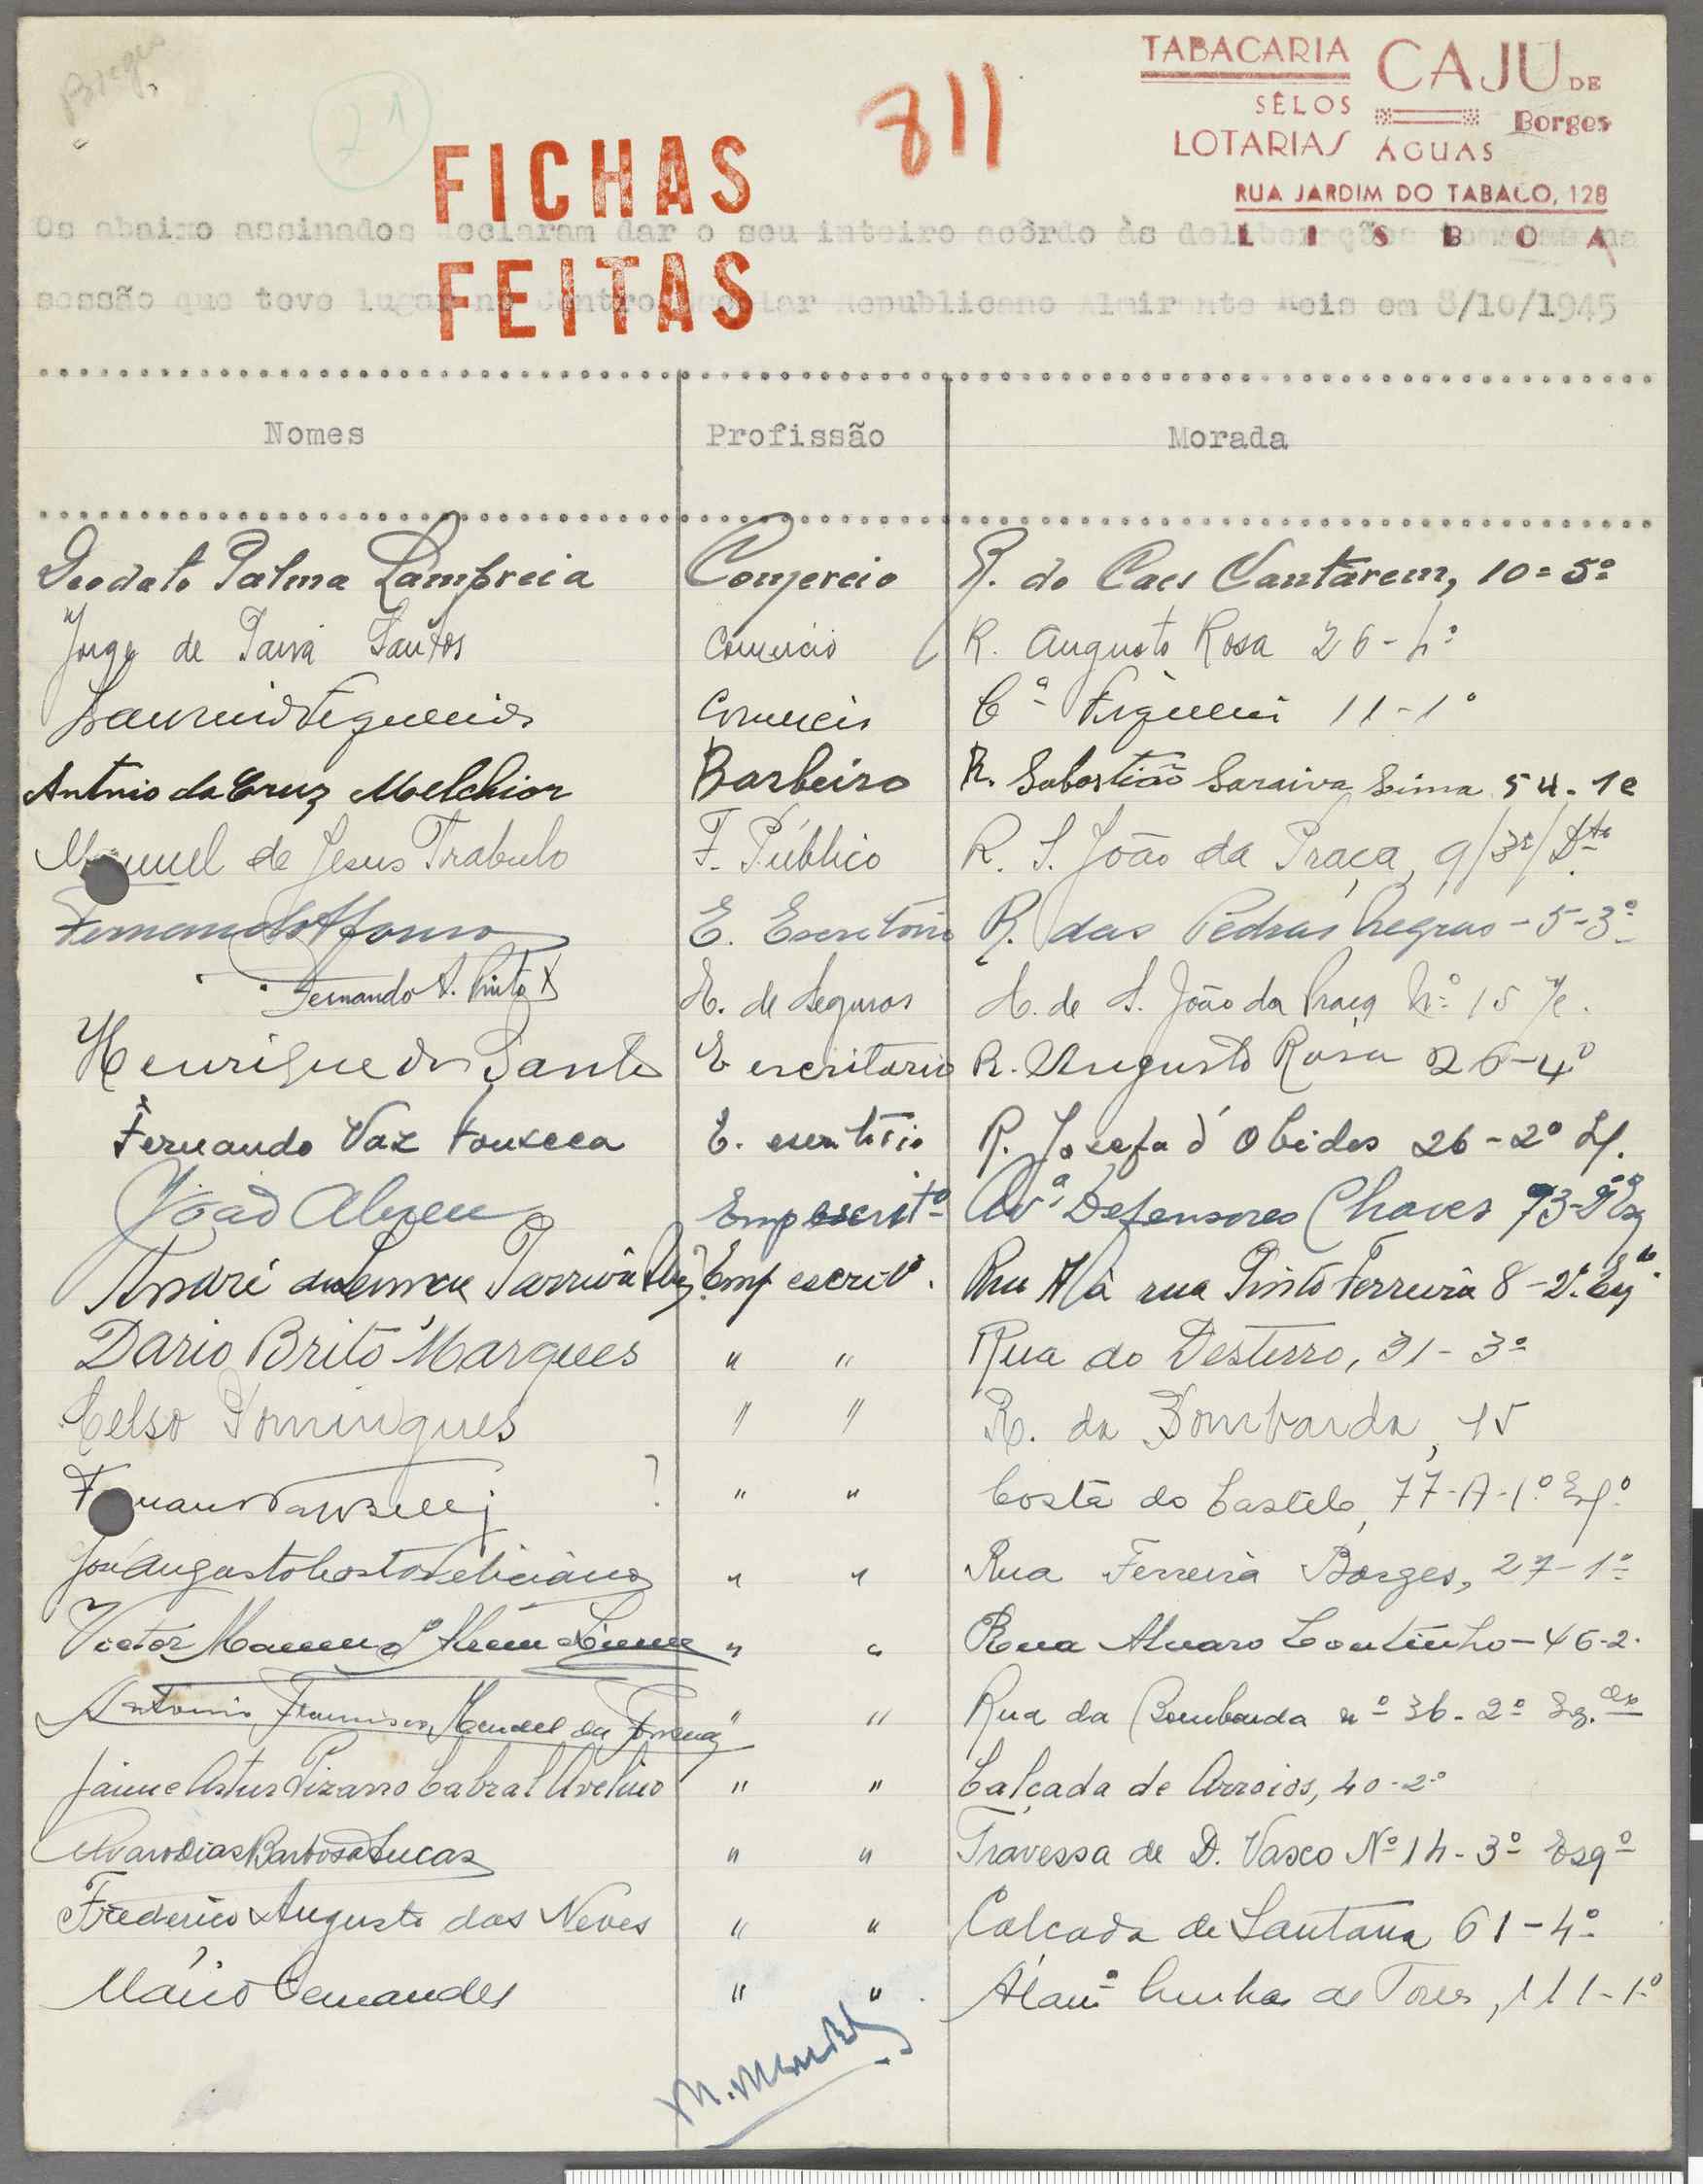 Borges
21
811
TABACARIA CAJU DE
SÊLOS Borges
LOTARIAS ÁGUAS
RUA JARDIM DO TABACO, 128
LISBOA
FICHAS
FEITAS
Os abaixo assinados declaram dar o seu inteiro acôrdo às deliberações tomadas na
sessão que teve lugar no Centro Escolar Republicano Almirante Reis em 8/10/1945
Nomes Profissão Morada
Deodato Palma Lampreia Comercio R. do Caes Santarem, 10=5º
Jorge de Paiva Santos Comercio R. Augusto Rosa 26-4º
Figueiredo Comercio 11-1º
Antonio da Cruz Melchior Barbeiro R. Sebastião Saraiva Lima 54-1e
Manuel de Jesus Trabulo F. Público R. S. João da Praça, 9/3º/Dto
Fernando Affonso E. Escritório R. das Pedras Negras-5-3º
Fernando A. Pinto E. de Seguros R. de S. João da Praça Nº 15
Henrique dos Santos E escritorio R. Augusto Rosa 26-4º
Fernando Vaz Fonseca E. escritório R. Josefa d'Obidos 26-2º
João Abreu Emp escritº Avª Defensores Chaves
André Emp escritº. Rua A à rua Pinto Ferreira 8-2º Esqº
Dario Brito Marques " " Rua do Desterro, 31-3º
Celso Domingues " " R. da Bombarda, 15
? " " Costa do Castelo, 77-A-1º Esqº
José Augusto Costa Feliciano " " Rua Ferreira Borges, 27-1º
Victor Manuel " " Rua Alvaro Coutinho-46-2.
Antonio Francisco Mendes da Fonseca " " Rua da Bombarda nº 36-2º
Jaime Artur Pizarro Cabral Avelino " " Calçada de Arroios, 40-2º
Alvaro Dias Barbosa Lucas " " Travessa de D. Vasco Nº 14-3º Esqº
Frederico Augusto das Neves " " Calçada de Santana 61-4º
Mário Fernandes " " 111-1º